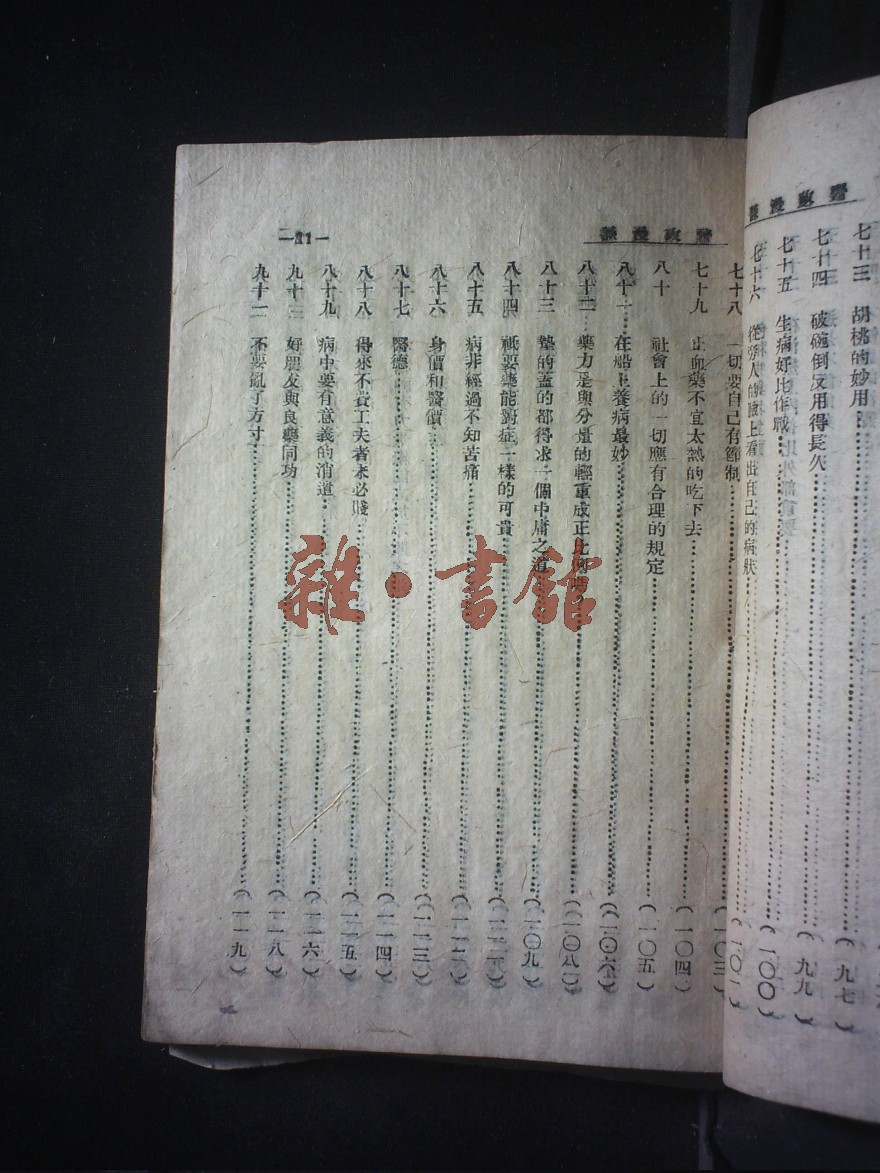 七十三 胡桃的妙用 (九七)
七十四 破碗倒反用得長久 (九九)
七十五 生病好比作戰 (一〇〇)
七十六 從旁人的臉上看出自己的病狀
七十八 一切要自己有節制 (一〇三)
七十九 止血藥不宜太熱的吃下去 (一〇四)
八十 社會上的一切應有合理的規定 (一〇五)
八十一 在船上養病最妙 (一〇六)
八十二 藥力是與分量的輕重成正比例 (一〇八)
八十三 墊的蓋的都得求一個中庸之道 (一〇九)
八十四 祇要藥能對症一樣的可貴
八十五 病非經過不知苦痛 (一一二)
八十六 身價和醫價 (一一三)
八十七 醫德 (一一四)
八十八 得來不費工夫者未必賤 (一一五)
八十九 病中要有意義的消遣 (一一六)
九十 好朋友與良藥同功 (一一八)
九十一 不要亂了方寸 (一一九)
雜·書館